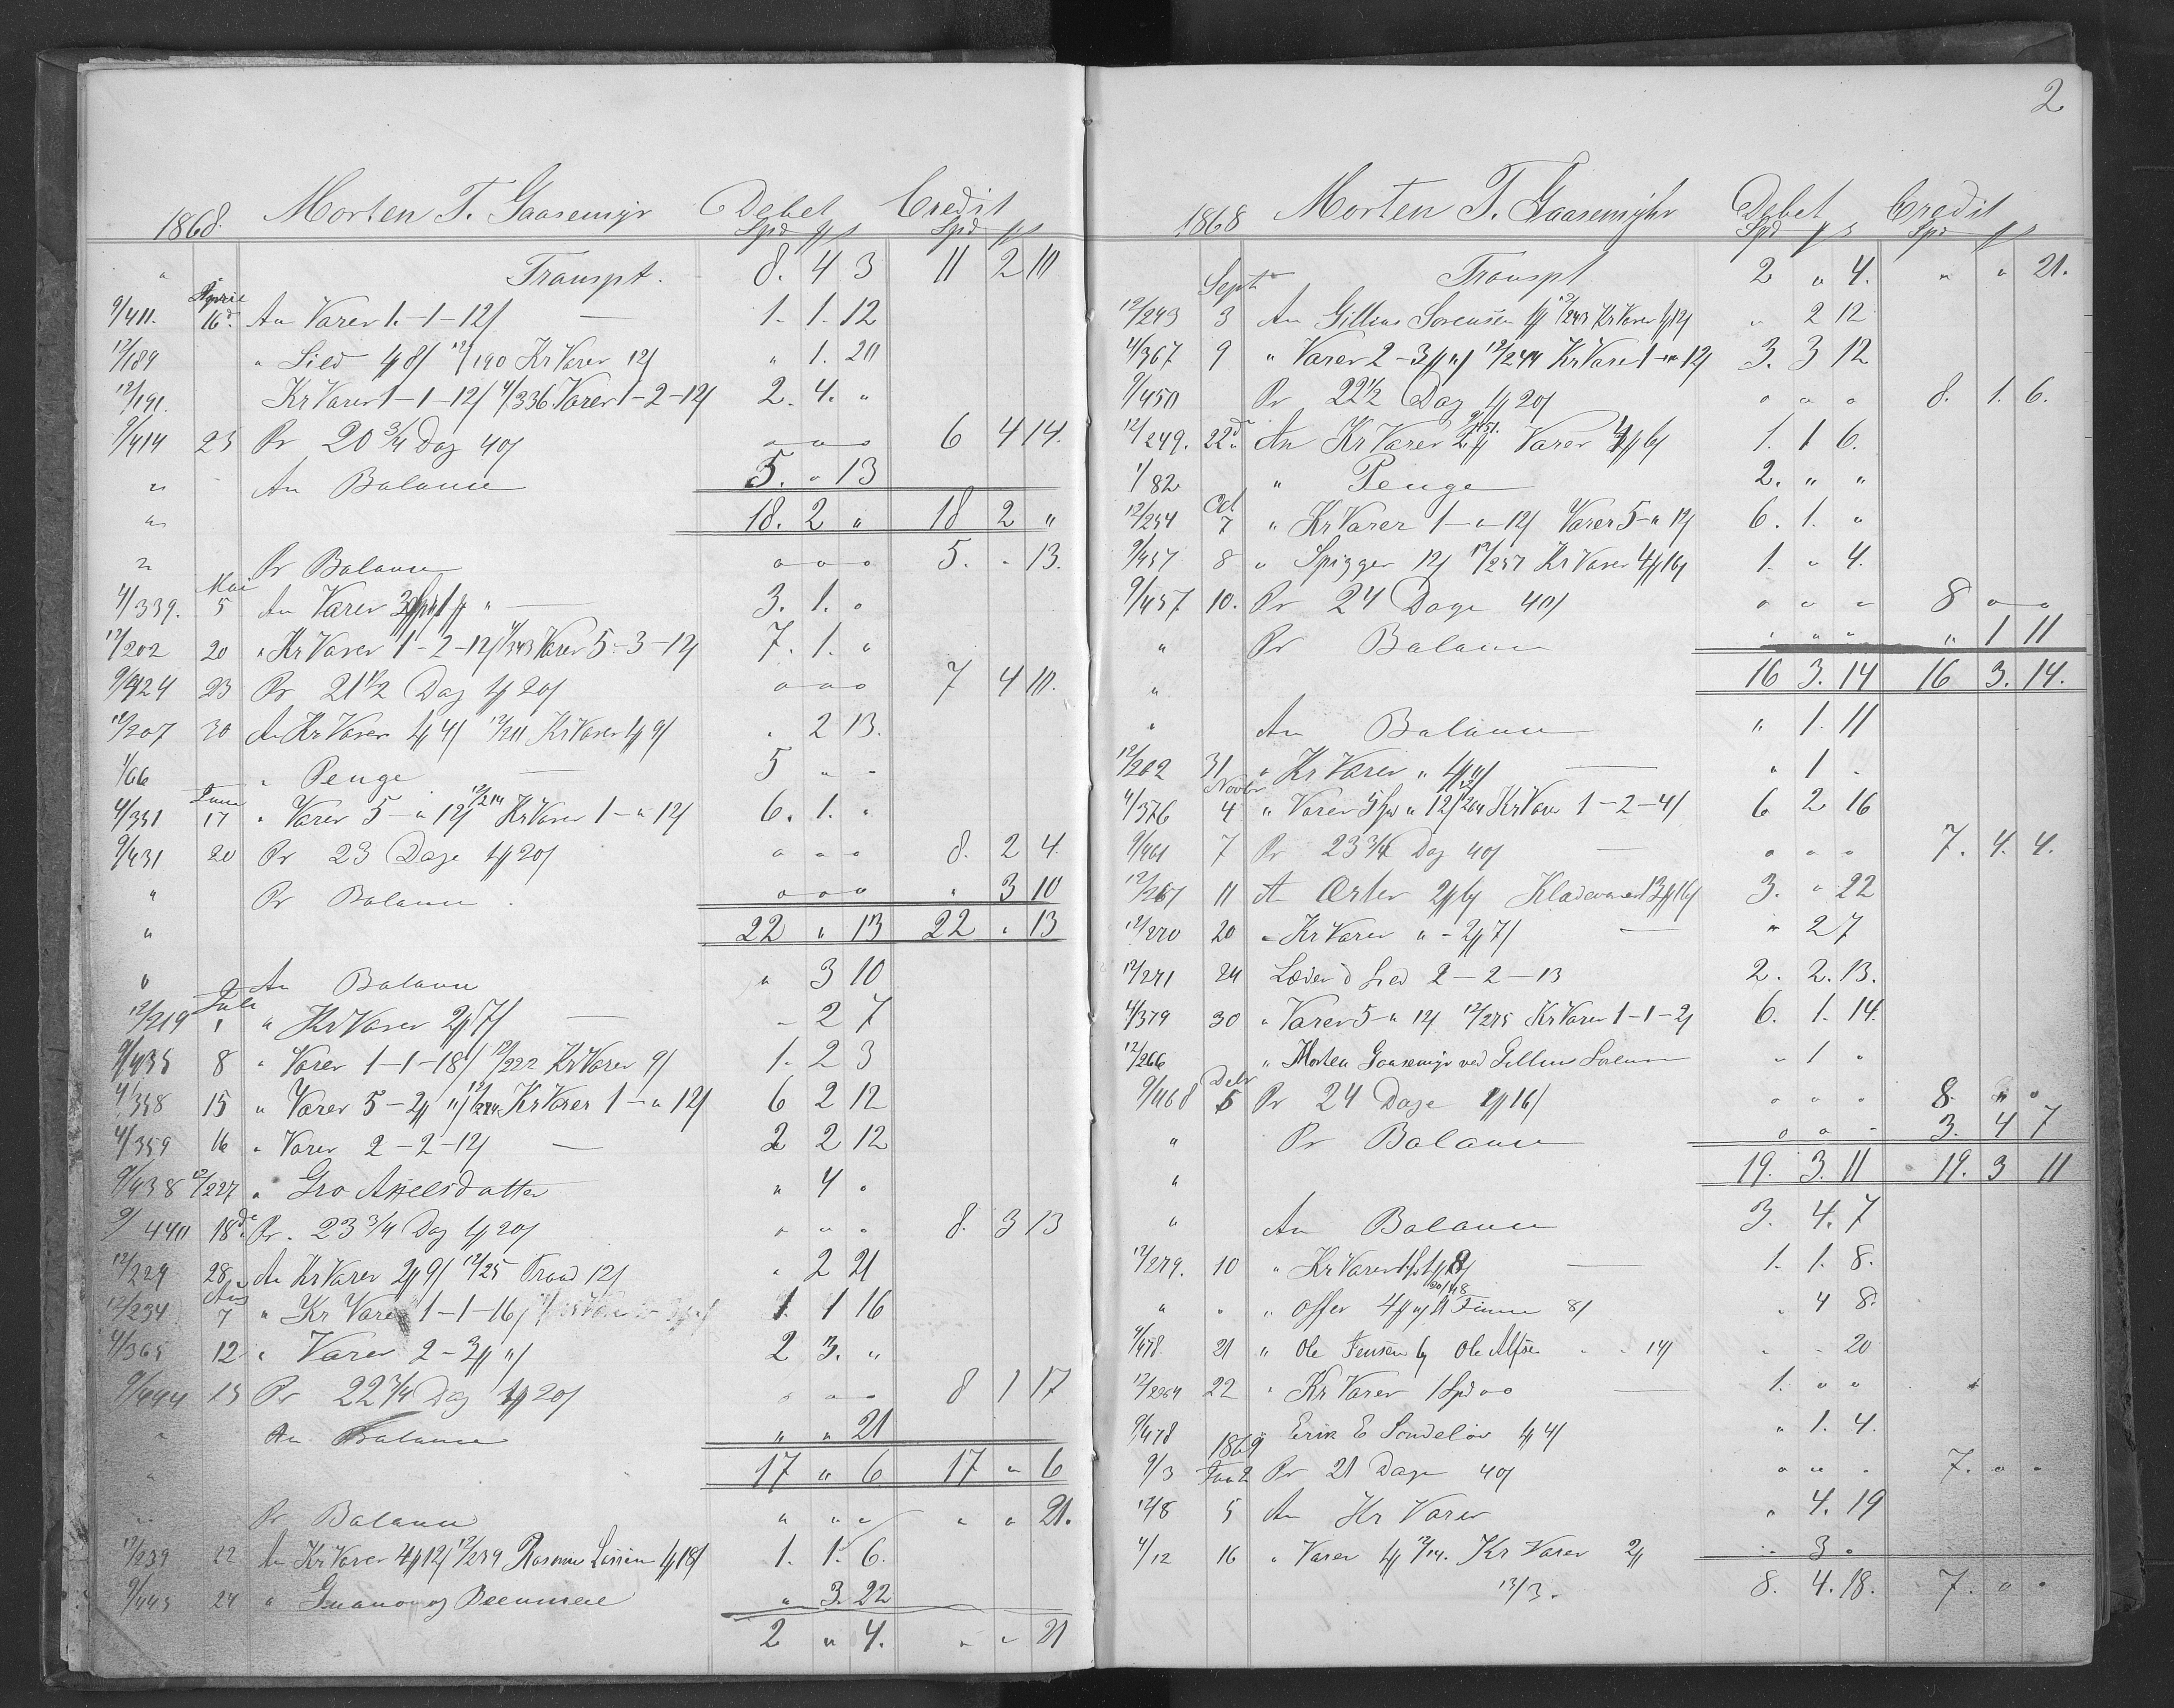 1868. Morten T. Gaasemyr Debet Credit
Spd Spd
" Transpt. 8. 4 3 11 2 10
April
9/411. 16d. An Varer 1-1-12/ — 1. 1. 12
12/189 " Sild 8/ 12/190 Kr Varer 12/ " 1. 20
12/191 Kr Varer 1-1-12/ 4/336 Varer 1-2-12/ 2. 4. "
9/414 25 Pr 20 3/4 Dag 40/ " " " 6 4 14.
" An Balance 5. " 13
" 18. 2 " 18 2 "
" Pr Balance " " " 5. " 13.
Mai
4/339. 5 An Varer — 3. 1. "
12/202 20 " Kr Varer 1-2-12/ 4/343 Varer 5-3-12/ 7. 1. "
9/424 23 Pr 21 1/2 Dag 20/ " " " 7 4 10.
12/207 30 An Kr Varer 4/ 12/211 Kr Varer 9/ " 2 13.
1/66 " Penge — 5 " "
Juni
4/351 17 " Varer 5-"-12/ 12/214 Kr Varer 1-"-12/ 6. 1. "
9/431 20 Pr 23 Dage 20/ " " " 8. 2 4.
" Pr Balance " " " " 3 10
" 22 " 13 22 " 13
" An Balance " 3 10
Juli
12/219 1 " Kr Varer 7/ — " 2 7
9/435 8 " Varer 1-1-18/ 12/222 Kr Varer 9/ 1. 2 3
4/358 15 " Varer 5-2 "/ 12/224 Kr Varer 1-"-12/ 6 2 12
4/359 16 " Varer 2-2-12/ — 2 2 12
9/438 12/227 " Gro Axelsdatter " 4 "
9/440 18de Pr. 23 3/4 Dag 20/ " " " 8. 3 13
12/229 28 An Kr Varer 9/ 12/25 Traad 12/ " 2 21
Aug
12/234 7 " Kr Varer 1-1-16/ 1. 1 16
4/365 12 " Varer 2-3 "/ 2 3. "
9/444 15 Pr 22 3/4 Dag 20/ " " " 8 1 17
" An Balance " " 21
" 17 " 6 17 " 6
" Pr Balance " " " " " 21.
12/239 22 An Kr Varer 12/ 12/239 Rasmus Larsen 18/ 1. 1. 6.
9/445 24 " Guano og Beenmeel " 3. 22
2 " 4. " " 21
2
1868 Morten T. Gaasemyhr Debet Credit
Spd Spd
Transpt 2 " 4. " " 21.
Septr
12/243 3 An Gillius Sorensen 12/243 Kr Varer 12/ " 2 12
4/367 9 " Varer 2-3 "/ 12/244 Kr Varer 1-"-12/ 3. 3 12
9/450 Pr 22 1/2 Dag 20/ " " " 8. 1. 6.
12/249. 22d An Kr Varer Varer 6/ 1. 1 6.
1/82 " Penge 2. " "
Oct
12/254 7 " Kr Varer 1-"-12/ Varer 5-"-12/ 6. 1. "
9/457 8 " Spigger 12/ 12/257 Kr Varer 16/ 1. " 4.
9/457 10. Pr 24 Dage 40/ " " " 8 " "
" Pr Balance " " " " 1 11
" 16 3. 14 16 3. 14.
" An Balance " 1. 11
12/262 31 " Kr Varer " — " 1 "
Novbr
4/376 4 " Varer 5 Spd " 12/ 12/264 Kr Varer 1-2-4/ 6 2 16
9/461 7 Pr 23 3/4 Dag 40/ — " " " 7. 4. 4.
12/267 11 An Erter 6/ Kladevarer 16/ 3. " 22
12/270 20 " Kr Varer " - 7/ — " 2 7
12/271 24 Læder 2-2-13 2. 2. 13.
4/379 30 " Varer 5-"-12/ 12/275 Kr Varer 1-1-2/ 6. 1. 14.
12/266 " Morten Gaasemyr ved Gillius Sorensen " 1 "
Decbr
9/468 5 Pr 24 Dage 16/ " " " 8. " "
" Pr Balance " " " 3. 4 7
" 19. 3. 11 19. 3 11
" An Balance 3. 4. 7
12/279. 10 " Kr Varer — 1. 1. 8.
" " " Offer 8/ " 4 8.
9/478. 21 " Ole Jensen og Ole Alfsen 14/ " " 20
12/284 22 " Kr Varer 1 Spd " " — 1. " "
9/478 " Erik E Sondeløv 4/ " 1. 4.
1869
9/3 Jan 2 Pr 21 Dage 40/ " " " 7. " "
12/8 5 An Kr Varer " 4. 19
4/12 16 " Varer 12/14. Kr Varer " 3 "
13/3. 8. 4. 18. 7. " "